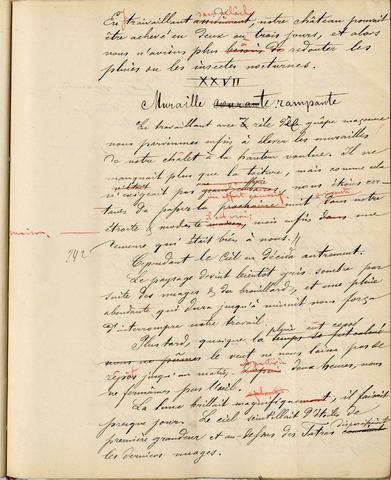 En travaillant assidûment, notre château pouvait
être achevé en deux ou trois jours, et alors
nous n'avions plus besoin de à redouter les
pluies ou les insectes nocturnes.
XXVII
Muraille courante rampante
En travaillant avec zèle de guêpe maçonne
nous parvenmes enfin à élever les murailles
de notre chalet à la hauteur voulue. Il ne
manquait plus que la toiture, mais comme cela
n'exigeait pas nous étions cer-
tains de passer la prochaine nuit dans notre
étroite & modeste maison, mais enfin dans une
maison.
il est vrai,
242
demeure qui était bien à nous!!
Cependant le Ciel en décida autrement.
Le paysage devint bientôt gris-sombre par
suite des nuages & du brouillard, et une pluie
abondante qui dura jusqu'à minuit nous força
d'interrompre notre travail.
Plus tard, quoique la pluie eut cessé
le vent ne nous laissa pas de
repos jusqu'au matin. deux heures, nous
ne fermâmes pas l'œil.
splendide
La lune brillait magnifiquement, il faisait
presque jour. Le ciel scintillait d'étoiles de
première grandeur et au-dessus des Tatras
les derniers nuages.